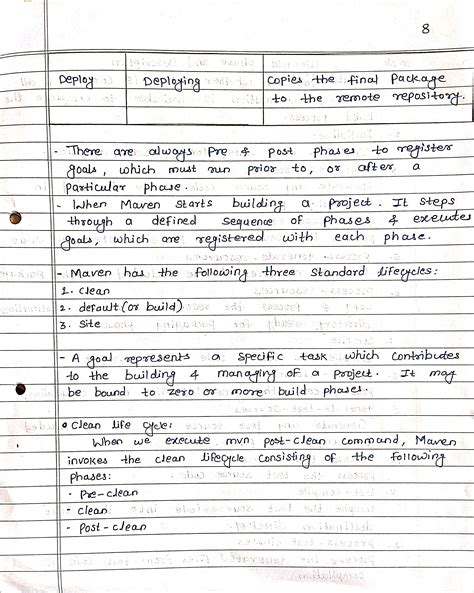 8
Deploy Deploying Copies the final Package
to the remote repository.
- There are always Pre & post phases to register
goals, which must run prior to, or after a
particular phase.
- When Maven starts building a project. It steps
through a defined sequence of phases & executes
goals, which are registered with each phase.
- Maven has the following three Standard lifecycles:
1. clean
2. default (or build)
3. Site
- A goal represents a specific task which contributes
to the building & managing of a Project. It may
be bound to zero or more build phases.
• Clean life cycle:
When we execute mvn post-clean command, Maven
invokes the clean lifecycle consisting of the following
phases:
- Pre-clean
- clean
- Post-clean